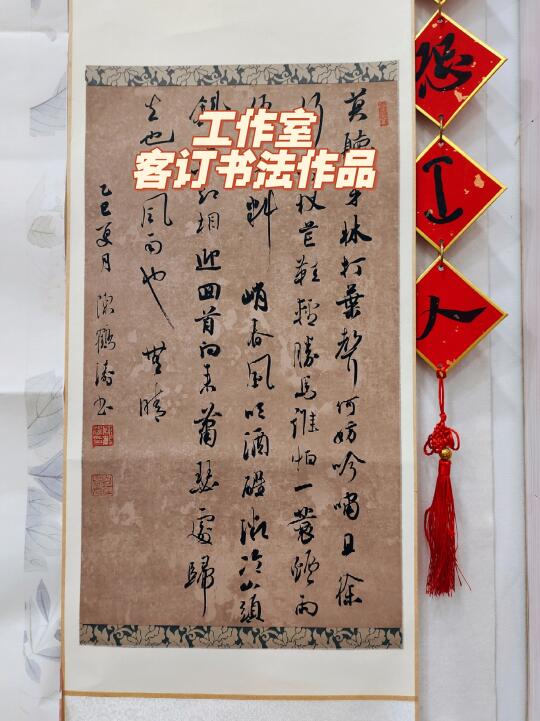 工作室
客订书法作品
莫聽穿林打葉聲何妨吟嘯且徐
行杖芒鞋輕勝馬誰怕一蓑煙雨
料峭春風吹酒醒微冷山頭
相迎回首向来蕭瑟處歸
去也風雨也無晴
乙巳夏月 陳鶴濤书
人